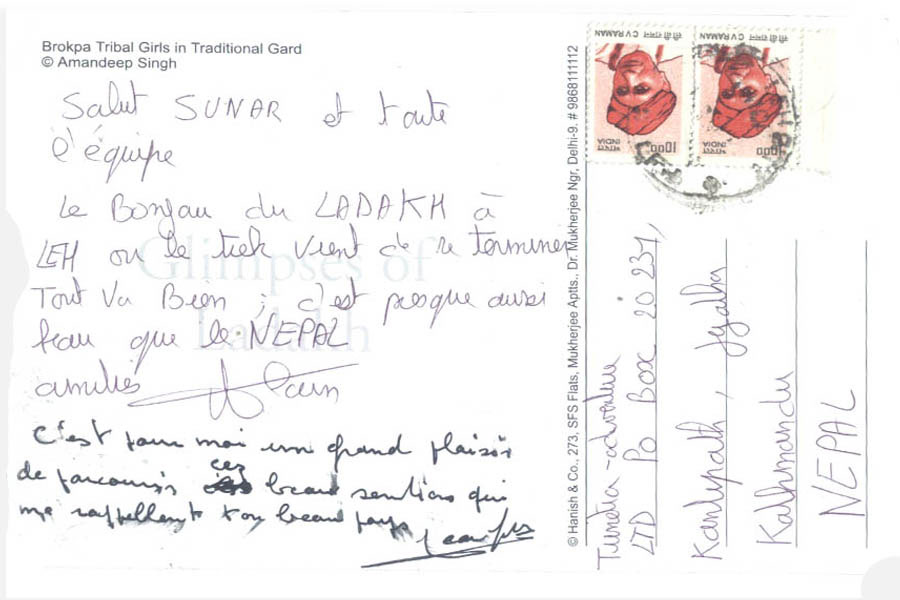 Brokpa Tribal Girls in Traditional Gard
© Amandeep Singh
Salut SUNAR et toute
l'équipe
Le Bonjour du LADAKH à
LEH ou le trek vient de se terminer
Tout va Bien ; c'est presque aussi
beau que le NEPAL
amitiés Alain
C'est pour moi un grand plaisir
de parcourir ces beaux sentiers qui
me rappellent ton beau pays
Glimpses of
Ladakh
© Hanish & Co., 273, SFS Flats, Mukherjee Aptts., Dr. Mukherjee Ngr, Delhi-9. # 9868111112
सी वी रामन C V RAMAN
भारत INDIA 1000
सी वी रामन C V RAMAN
भारत INDIA 1000
LEH
LTD PO BOX 20237,
Kathmandu
NEPAL